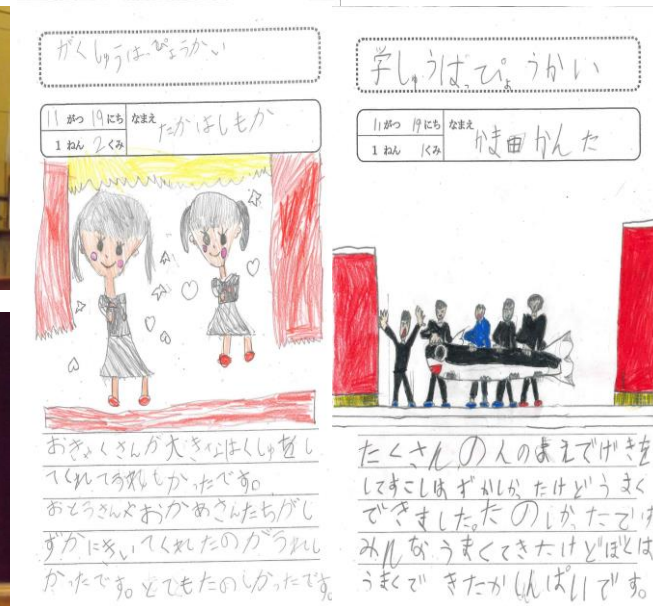 がくしゅうはっぴょうかい
11 がつ 19 にち なまえ
1 ねん 2 くみ たかはしもか
おきゃくさんが大きなはくしゅをし
てくれてうれしかったです。
おとうさんやおかあさんたちがし
ずかにきいてくれたのがうれし
かったです。とてもたのしかったです。
学しゅうはっぴょうかい
11 がつ 19 にち なまえ
1 ねん 1 くみ かま田かんた
たくさんの人のまえでげきを
してすこしはずかしかったけどうまく
できました。たのしかったです
みんなうまくできたけどぼくは
うまくできたかしんぱいです。